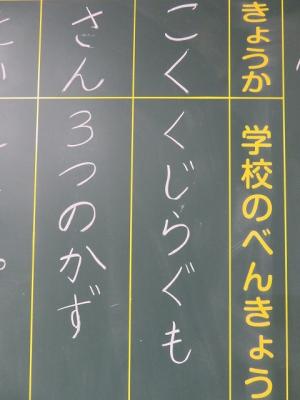 きょうか 学校のべんきょう
こく くじらぐも
さん 3つのかず